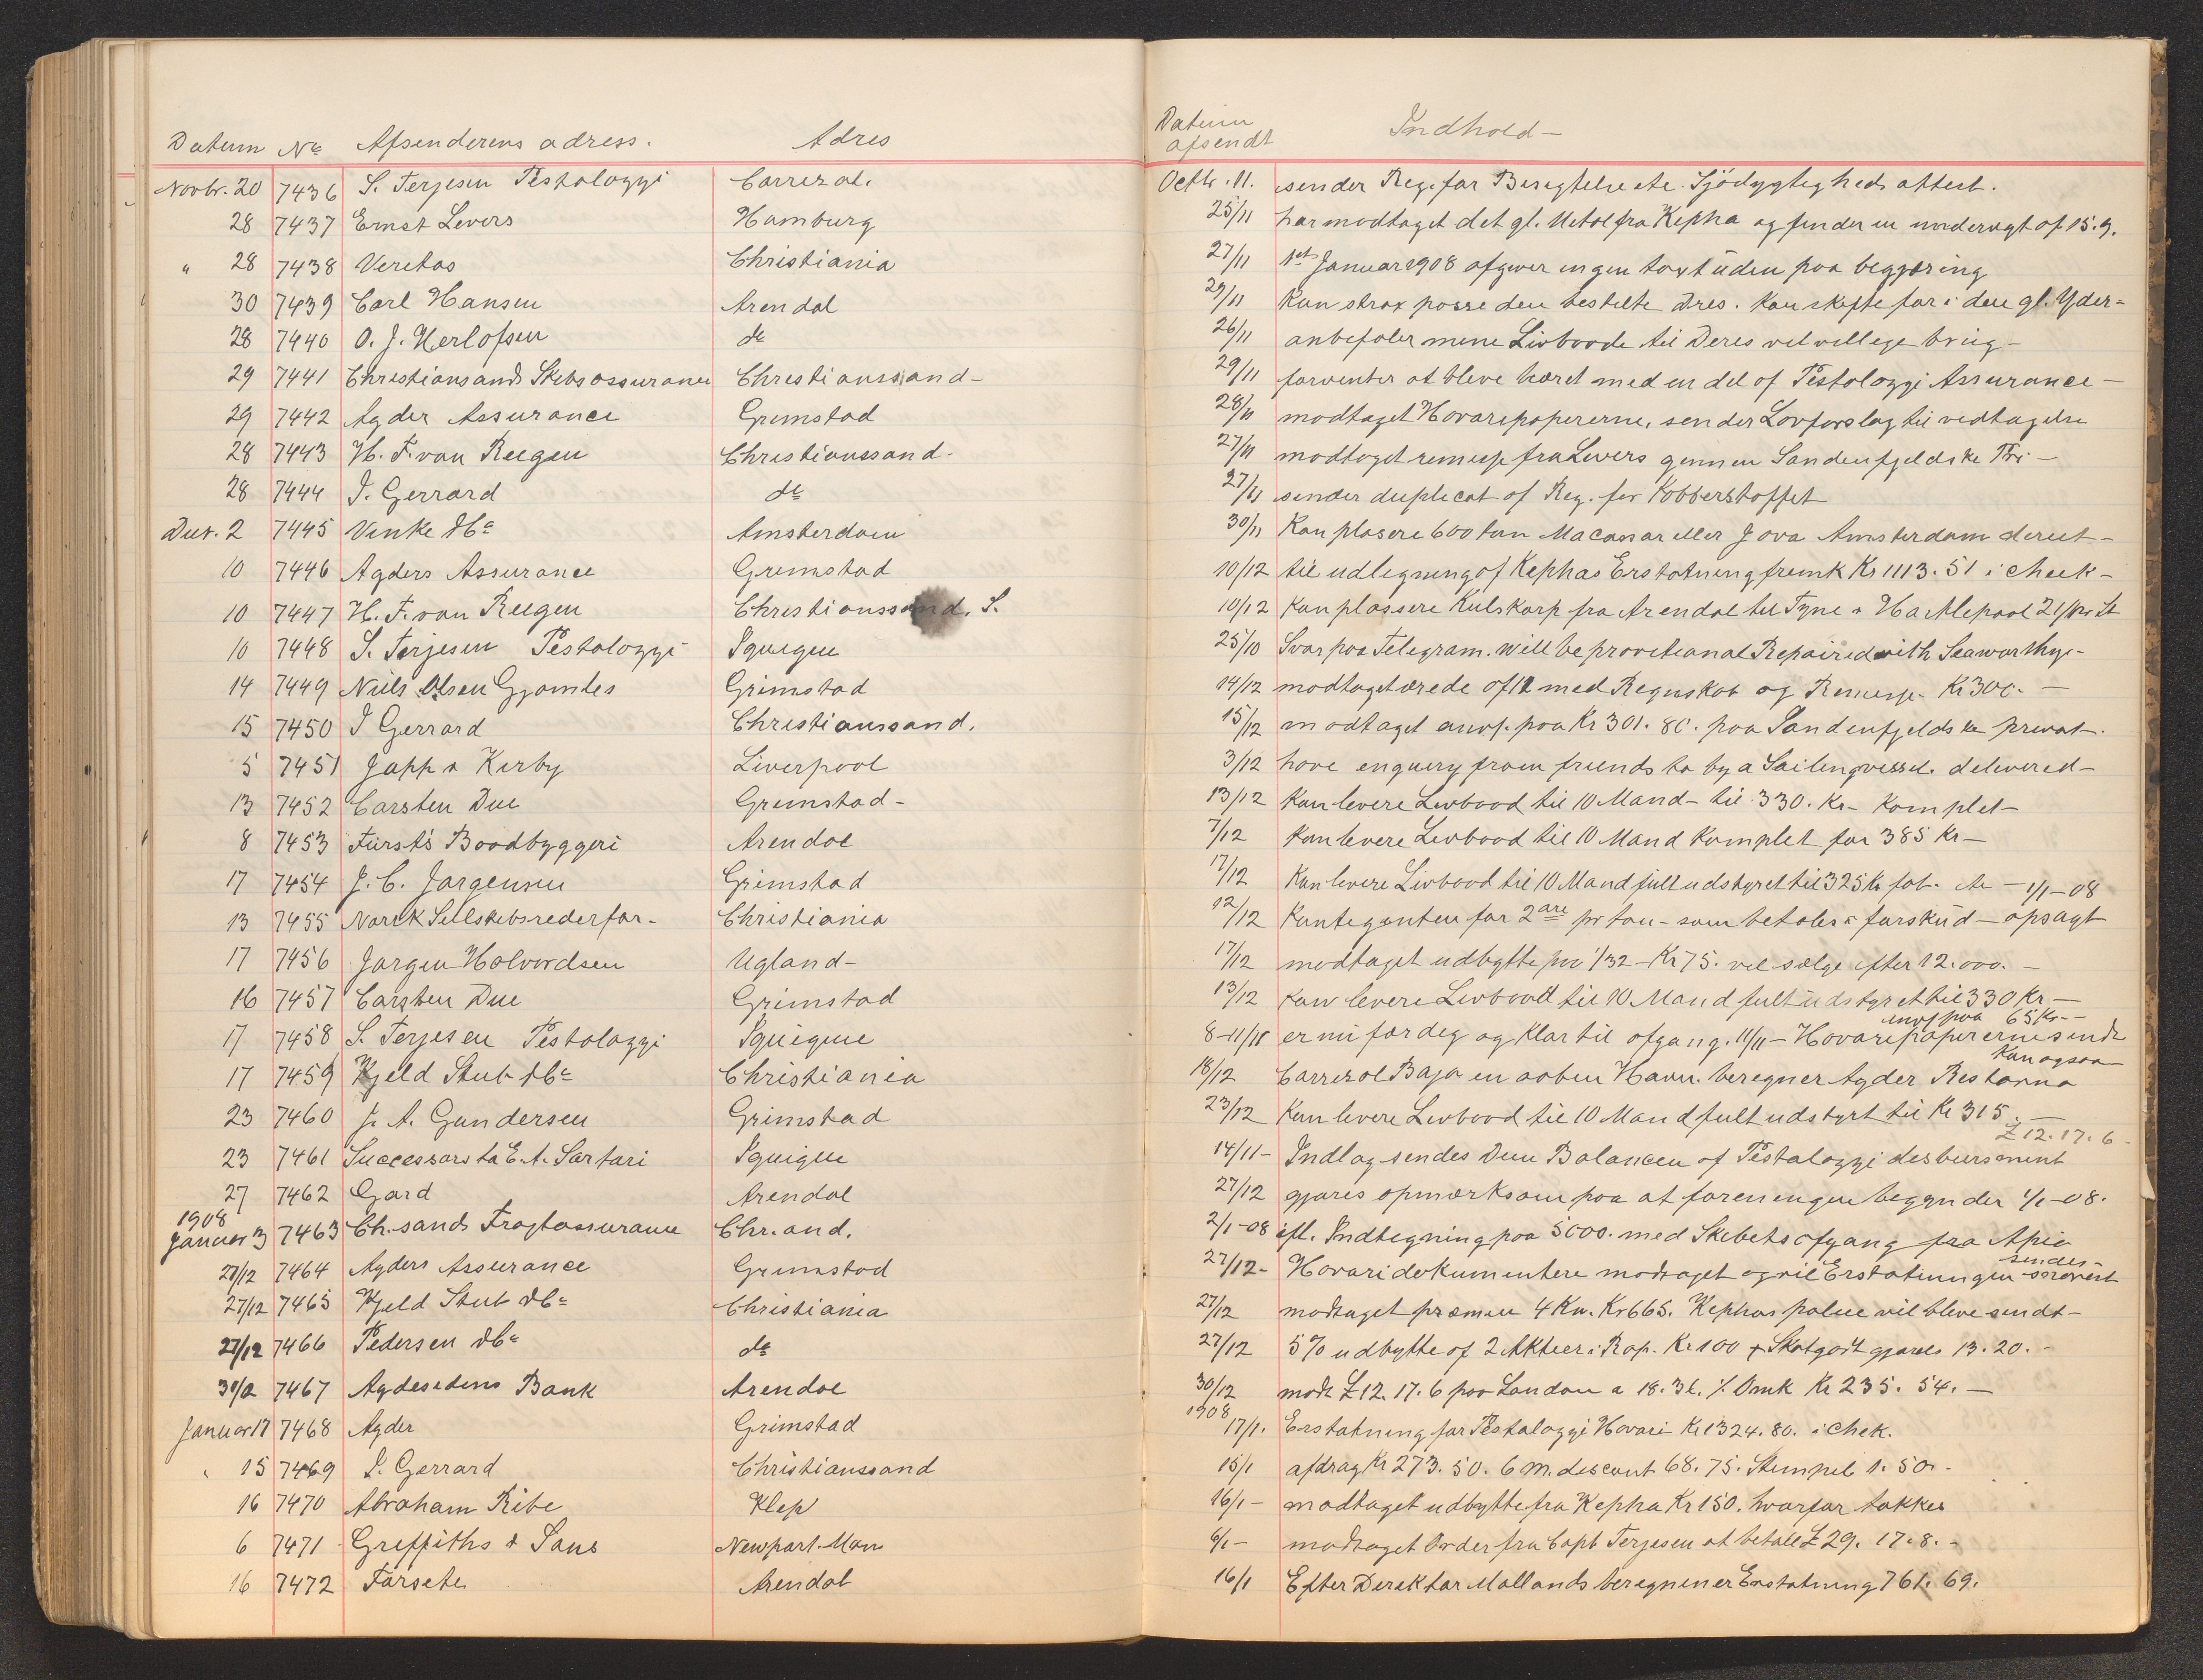 Datum No Afsenderens adress. Adres
Novbr. 20 7436 S. Terjesen Pestalozzi Carrizal.
28 7437 Ernst Levers Hamburg
" 28 7438 Veritas Christiania
30 7439 Carl Hansen Arendal
28 7440 O. J. Herlofsen do
29 7441 Christiansands Skibsassurance Christianssand-
29 7442 Agder Assurance Grimstad
28 7443 H. F. van Reegen Christianssand-
28 7444 I. Gerrard do
Decr. 2 7445 Vinke & Co Amsterdam
10 7446 Agders Assurance Grimstad
10 7447 H. F. van Reegen Christianssand. S.
10 7448 S. Terjesen Pestalozzi Iquique
14 7449 Niels Olsen Gjømles Grimstad
15 7450 I Gerrard Christianssand.
5 7451 Japp & Kirby Liverpool
13 7452 Carsten Due Grimstad-
8 7453 Fürst's Baadbyggeri Arendal
17 7454 J. C. Jørgensen Grimstad
13 7455 Norsk Seilskibsrederfor- Christiania
17 7456 Jørgen Halvordsen Ugland-
16 7457 Carsten Due Grimstad
17 7458 S. Terjesen Pestalozzi Iquique
17 7459 Kjeld Stub & Co Christiania
23 7460 J. A. Gundersen Grimstad
23 7461 Successors to E. A. Sartori Iquique
27 7462 Gard Arendal
1908
Januar 3 7463 Ch.sands Fragtassurance Chr.and.
28/12 7464 Agders Assurance Grimstad
27/12 7465 Kjeld Stub & Co Christiania
27/12 7466 Pedersen & Co do
30/12 7467 Agdesidens Bank Arendal
Januar 17 7468 Agder Grimstad
" 15 7469 I. Gerrard Christianssand
16 7470 Abraham Ribe Klep
6 7471 Griffiths & Sons Newport. Mon
16 7472 Forsete Arendal
Datum
afsendt Indhold-
Octbr. 11. sender Reg. for Besigtelse etc. Sjödygtigheds attest.
25/11 har modtaget det gl. Metal fra Kepha og finder en undervægt af 15.9.
27/11 1st Januar 1908 afgiver ingen taxt uden paa begjæring
29/11 Kan strax passe den bestilte Dres. Kan skifte for i den gl. Yder-
26/11 anbefaler mine Livbaade til Deres velvillige brug-
29/11 forventer at bleve bæret med en del af Pestalozzi Assurance-
28/11 modtaget Havaripapirerne, sender Lovforslag til vedtagelse
27/11 modtaget remisse fra Levers gennem Søndenfjeldske Pri-
27/11 sender duplicat of Reg. for Kobberstoffet
30/11 Kan plasere 600 ton Macassar eller Java Amsterdam direct-
10/12 til udligning af Kephas Erstatning fremk Kr 1113.51 i check-
10/12 Kan plassere Kulskarp fra Arendal til Tyne & Hartlepool 21/
25/10 Svar paa Telegram. will be provitional Repaired with Seaworthy-
14/12 modtaget ærede af 12 med Regnskab og Remisse. Kr 300.-
15/12 modtaget anvs. paa Kr 301.80. paa Søndenfjeldske privat-
3/12 have enquery from friends to by a Sailingvessel. delivered-
13/12 Kan levere Livbaad til 10 Mand- til 330. Kr- Komplet-
7/12 kan levere Livbaad til 10 Mand Komplet for 385 Kr-
17/12 Kan levere Livbaad til 10 Mand fult udstyret til 325 Kr fob. etc - 1/1-08
12/12 Kontigenten for 2 øre pr ton- som betales i forskud- opsagt
17/12 modtaget udbytte paa 1/32 - Kr 75. vil sælge efter 12.000.-
13/12 Kan levere Livbaad til 10 Mand fult udstyret til 330 Kr-
anvs paa 65 Kr-
8-11/11 er nu færdig og Klar til afgang. 11/11- Havaripapirerne sendt
Kan ogsaa
18/12 Carrizal Baja en aaben Havn. beregner Agder Restorno
23/12 Kan levere Livbaad til 10 Mand fult udstyrt til Kr 315.-
£ 12.17.6-
14/11- Indlag sendes Dem Balancen of Pestalozzi desbursement
27/12 gjøres opmærksom paa at foreningen begynder 1/1-08.
2/1-08 ifl. Indtegning paa 5000. med Skibets afgang fra Apia
sendes-
27/12- Havaridokumentere modtaget og vil Erstatningen
27/12 modtaget præmien 4 Kv. Kr 665. Kephas police vil bleve sendt-
27/12 5% udbytte af 2 Aktier i Rap. Kr 100 + Skatgodtgjørels 13.20.-
30/12 modt £ 12.17.6 paa London a 18.36. % Omk Kr 235.54.-
1908
17/1. Erstatning for Pestalozzi Havari Kr 1324.80. i Chek.
15/1 afdrag Kr 273.50. 6 m. discont 68.75. Stempel 1.50.-
16/1- modtaget udbytte fra Kepha Kr 150. hvorfor takkes
6/1- modtaget Order fra Capt Terjesen at betale £ 29.17.8.-
16/1 Efter Direktør Mallands beregninger Erstatning 761.69.